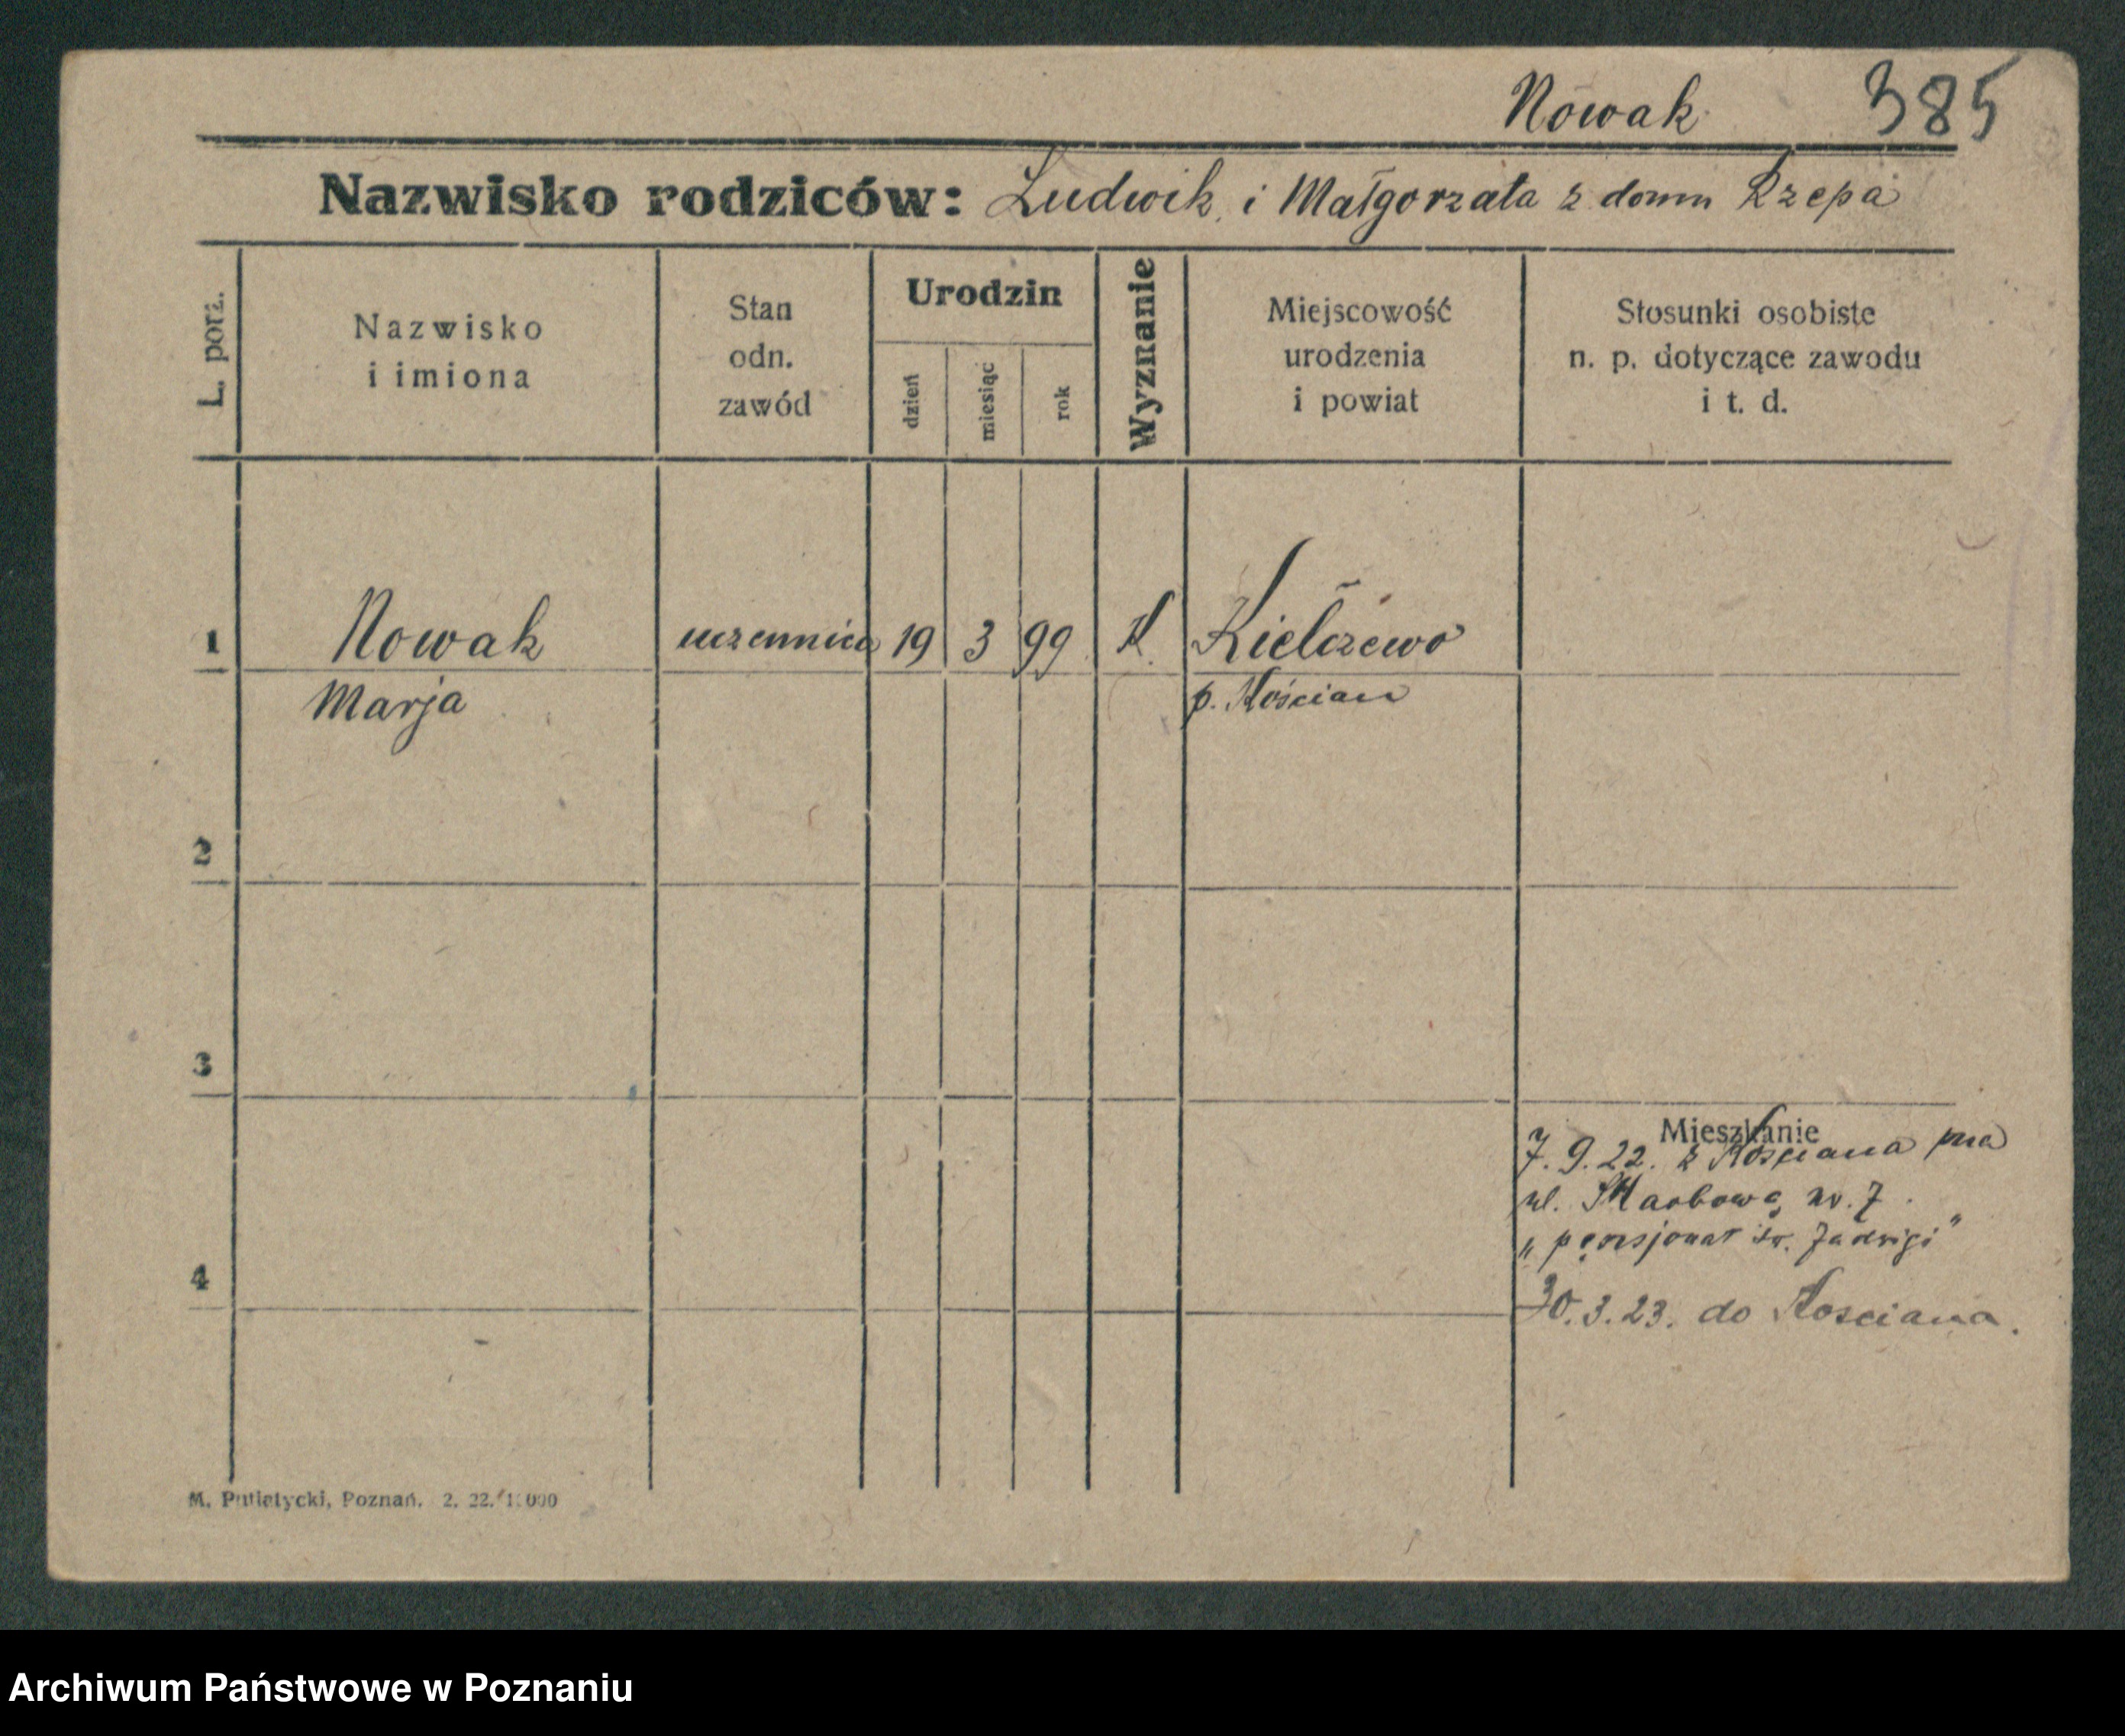 Nowak 385
Nazwisko rodziców: Ludwik i Małgorzata z domu Rzepa
L. porz.
Nazwisko
i imiona
Stan
odn.
zawód
Urodzin
dzień
miesiąc
rok
Wyznanie
Miejscowość
urodzenia
i powiat
Stosunki osobiste
n. p. dotyczące zawodu
i t. d.
1 Nowak uczennica 19 3 99 K. Kiełczewo
Marja p. Kościan
2
3
Mieszkanie
7. 9. 22. z Kościana na
ul. Skarbową nr. 7.
„pensjonat św. Jadwigi”
4
30. 3. 23. do Kościana.
M. Putiatycki, Poznań. 2. 22.
Archiwum Państwowe w Poznaniu